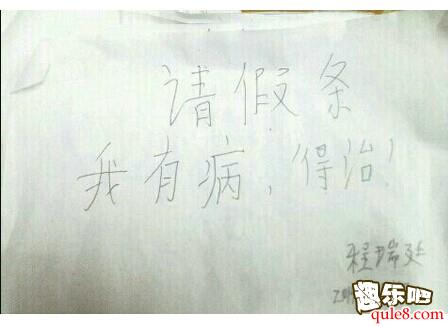 请假条
我有病，得治！
程瑞
趣乐吧
qule8.com